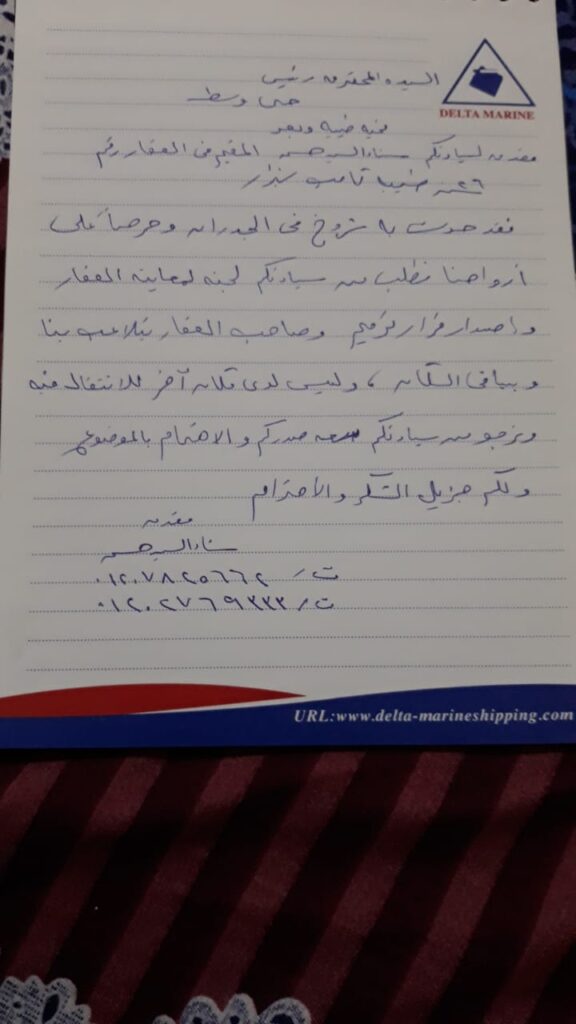 السيده المحترمه رئيس
حى وسط
DELTA MARINE
تحيه طيبه وبعد
مقدمه لسيادتكم سناء السيد حسن المقيم فى العقار رقم
٢٦ ش
فقد حدث به شروخ فى الجدران وحرصاً على
ارواحنا نطلب من سيادتكم لجنه لمعاينه العقار
وإصدار قرار ترميم وصاحب العقار يتلاعب بنا
وبباقى السكان ، وليس لدى مكان آخر للانتقال فيه
ونرجو من سيادتكم سعه صدركم والاهتمام بالموضوع
ولكم جزيل الشكر والأحترام
مقدمه
سناء السيد حسن
ت / ٠١٢٠٧٨٢٥٦٦٢
ت / ٠١٢٠٢٧٦٩٣٣٣
URL:www.delta-marineshipping.com